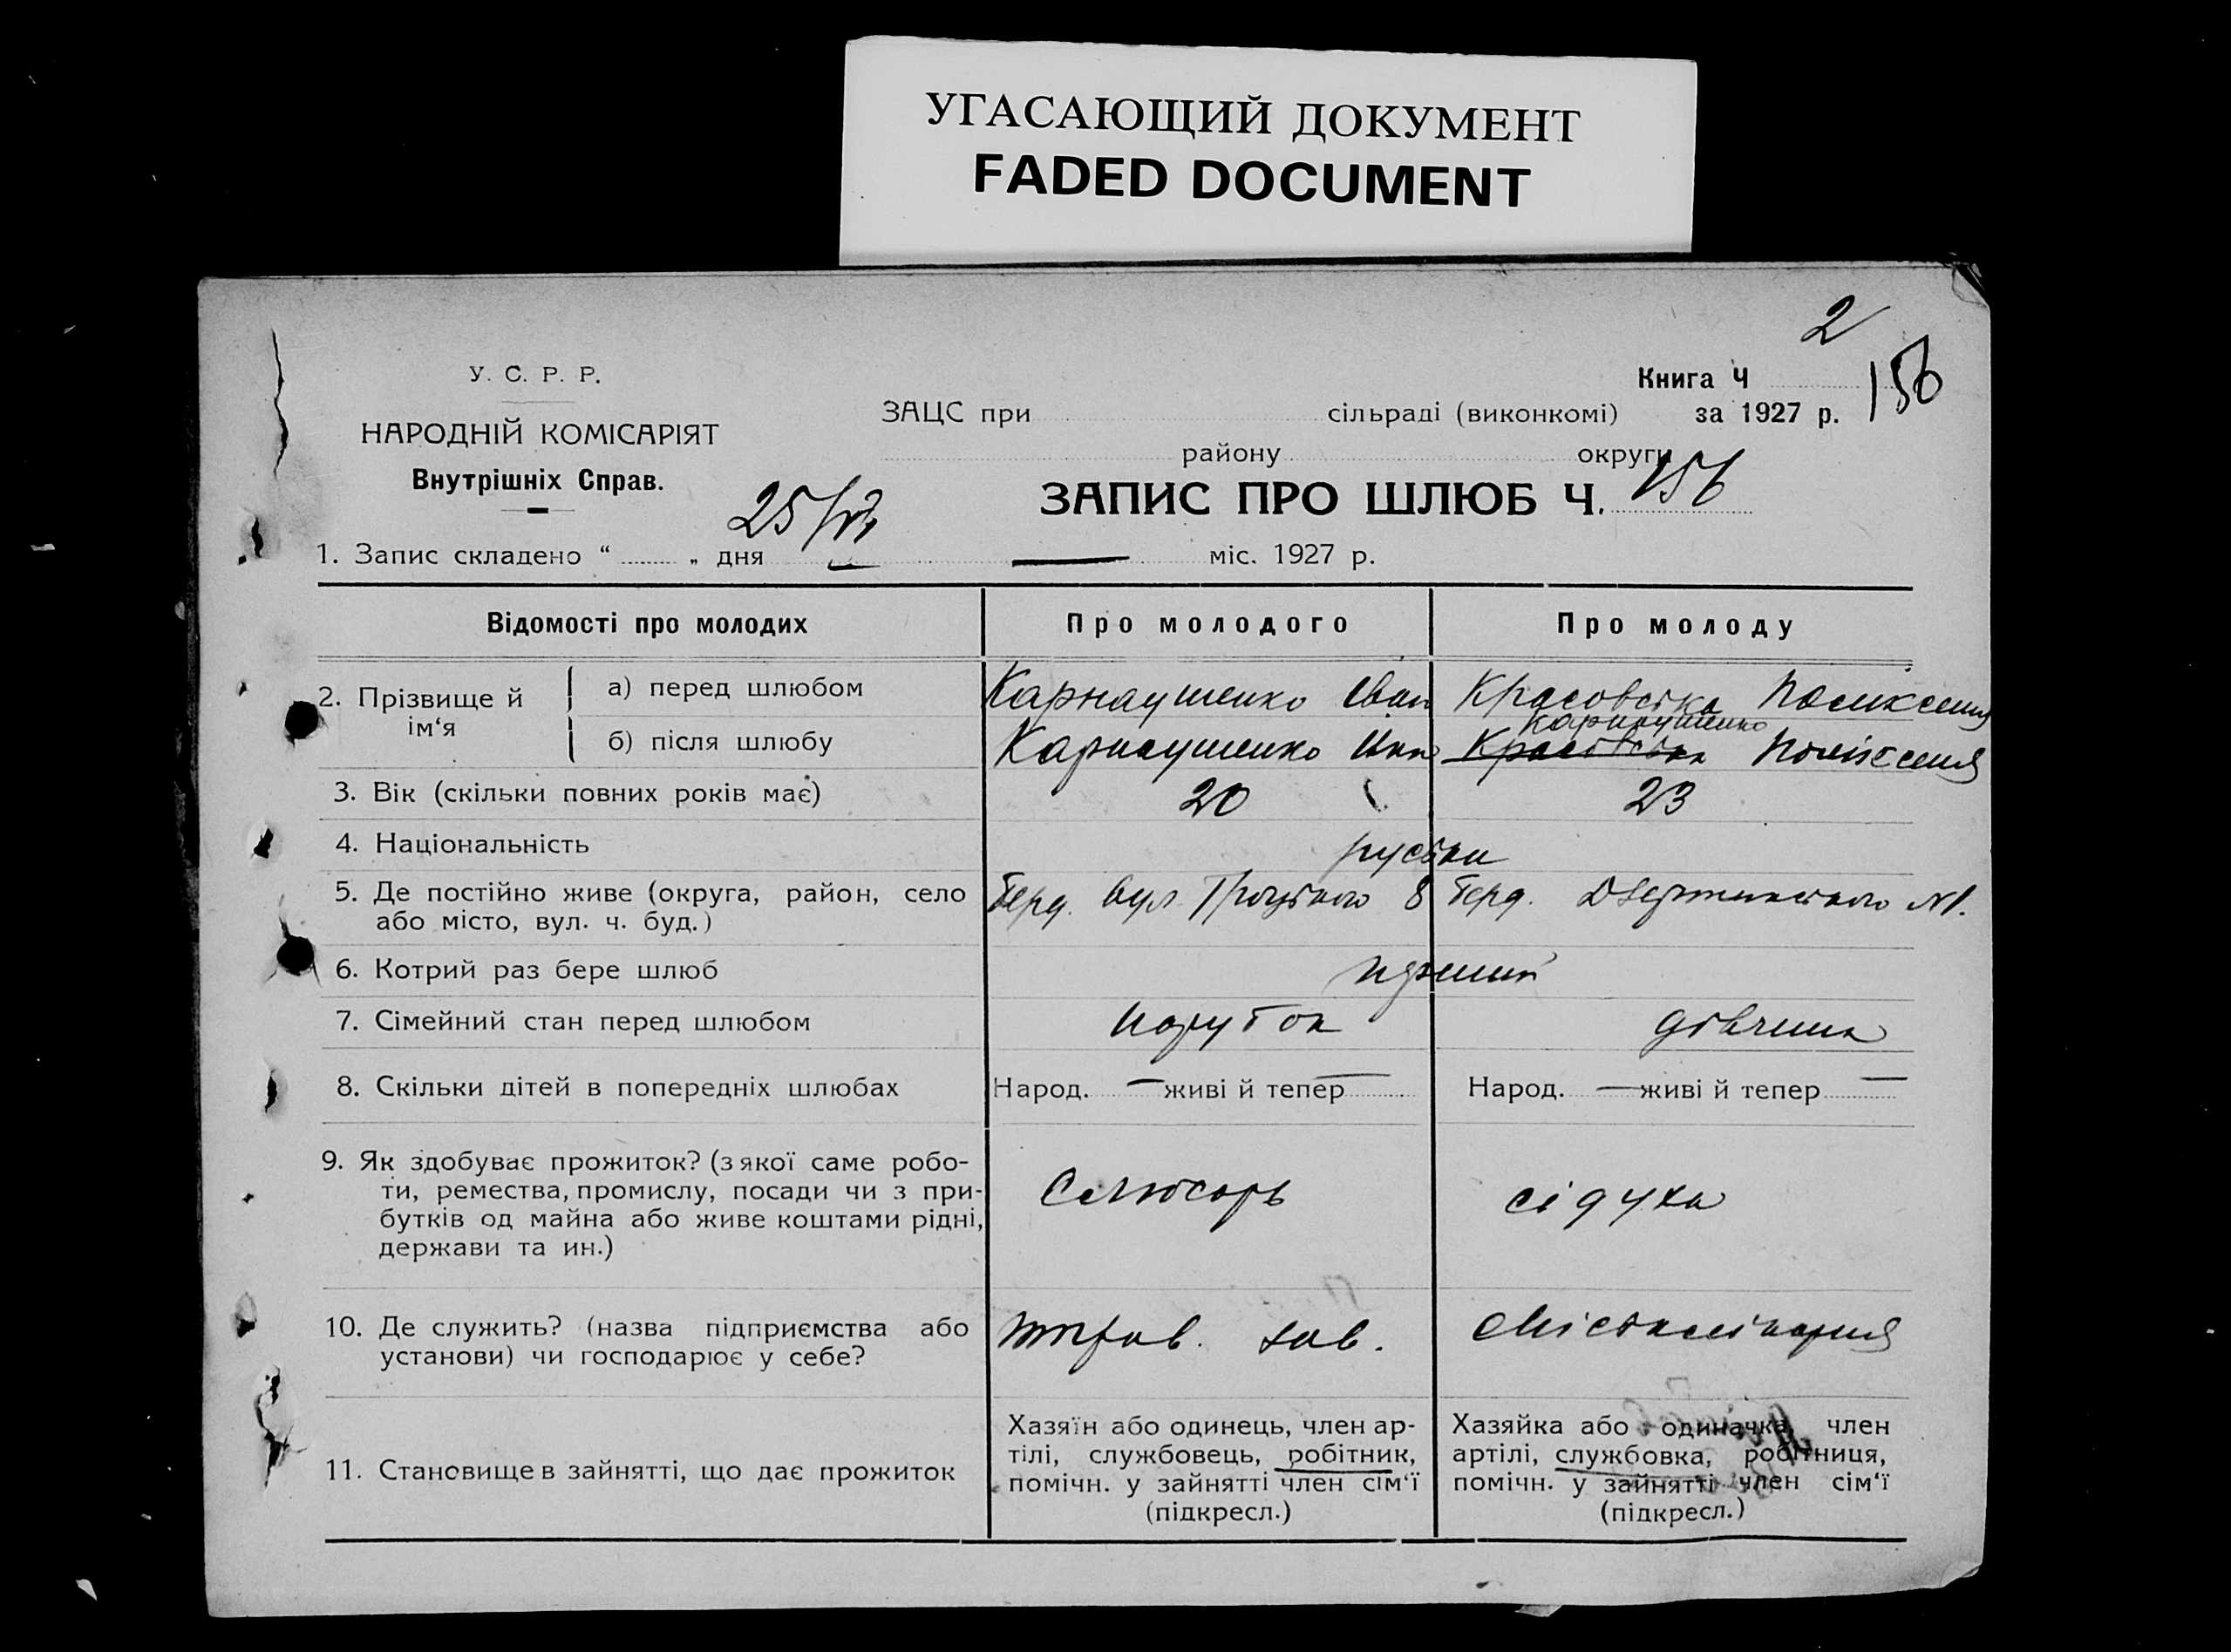 УГАСАЮЩИЙ ДОКУМЕНТ
FADED DOCUMENT
2
У. С. Р. Р.
НАРОДНІЙ КОМІСАРІЯТ
Внутрішніх Справ.
Книга Ч
156
ЗАЦС при сільраді (виконкомі) за 1927 р.
району округи
ЗАПИС ПРО ШЛЮБ Ч. 156
1. Запис складено “ „ дня 25/ міс. 1927 р.
Відомості про молодих Про молодого Про молоду
2. Прізвище й ім‘я
а) перед шлюбом Карнаушенко Іван Красовська Поликсения
Карнаушенко
б) після шлюбу Карнаушенко Іван Красовська Поліксения
3. Вік (скільки повних років має) 20 23
4. Національність руські
5. Де постійно живе (округа, район, село або місто, вул. ч. буд.) Берд. вул Троцького 8 Берд. Дзержинського №1.
6. Котрий раз бере шлюб перший
7. Сімейний стан перед шлюбом паруток дівчина
8. Скільки дітей в попередніх шлюбах Народ. — живі й тепер — Народ. — живі й тепер —
9. Як здобуває прожиток? (з якої саме робо-
ти, ремества, промислу, посади чи з при-
бутків од майна або живе коштами рідні,
держави та ин.)
Слюсарь сідуха
10. Де служить? (назва підприємства або
установи) чи господарює у себе?
зав. Містлікарня
11. Становище в зайнятті, що дає прожиток
Хазяїн або одинець, член ар-
тілі, службовець, робітник,
помічн. у зайнятті член сім‘ї
(підкресл.)
Хазяйка або одиначка, член
артілі, службовка, робітниця,
помічн. у зайнятті член сім‘ї
(підкресл.)